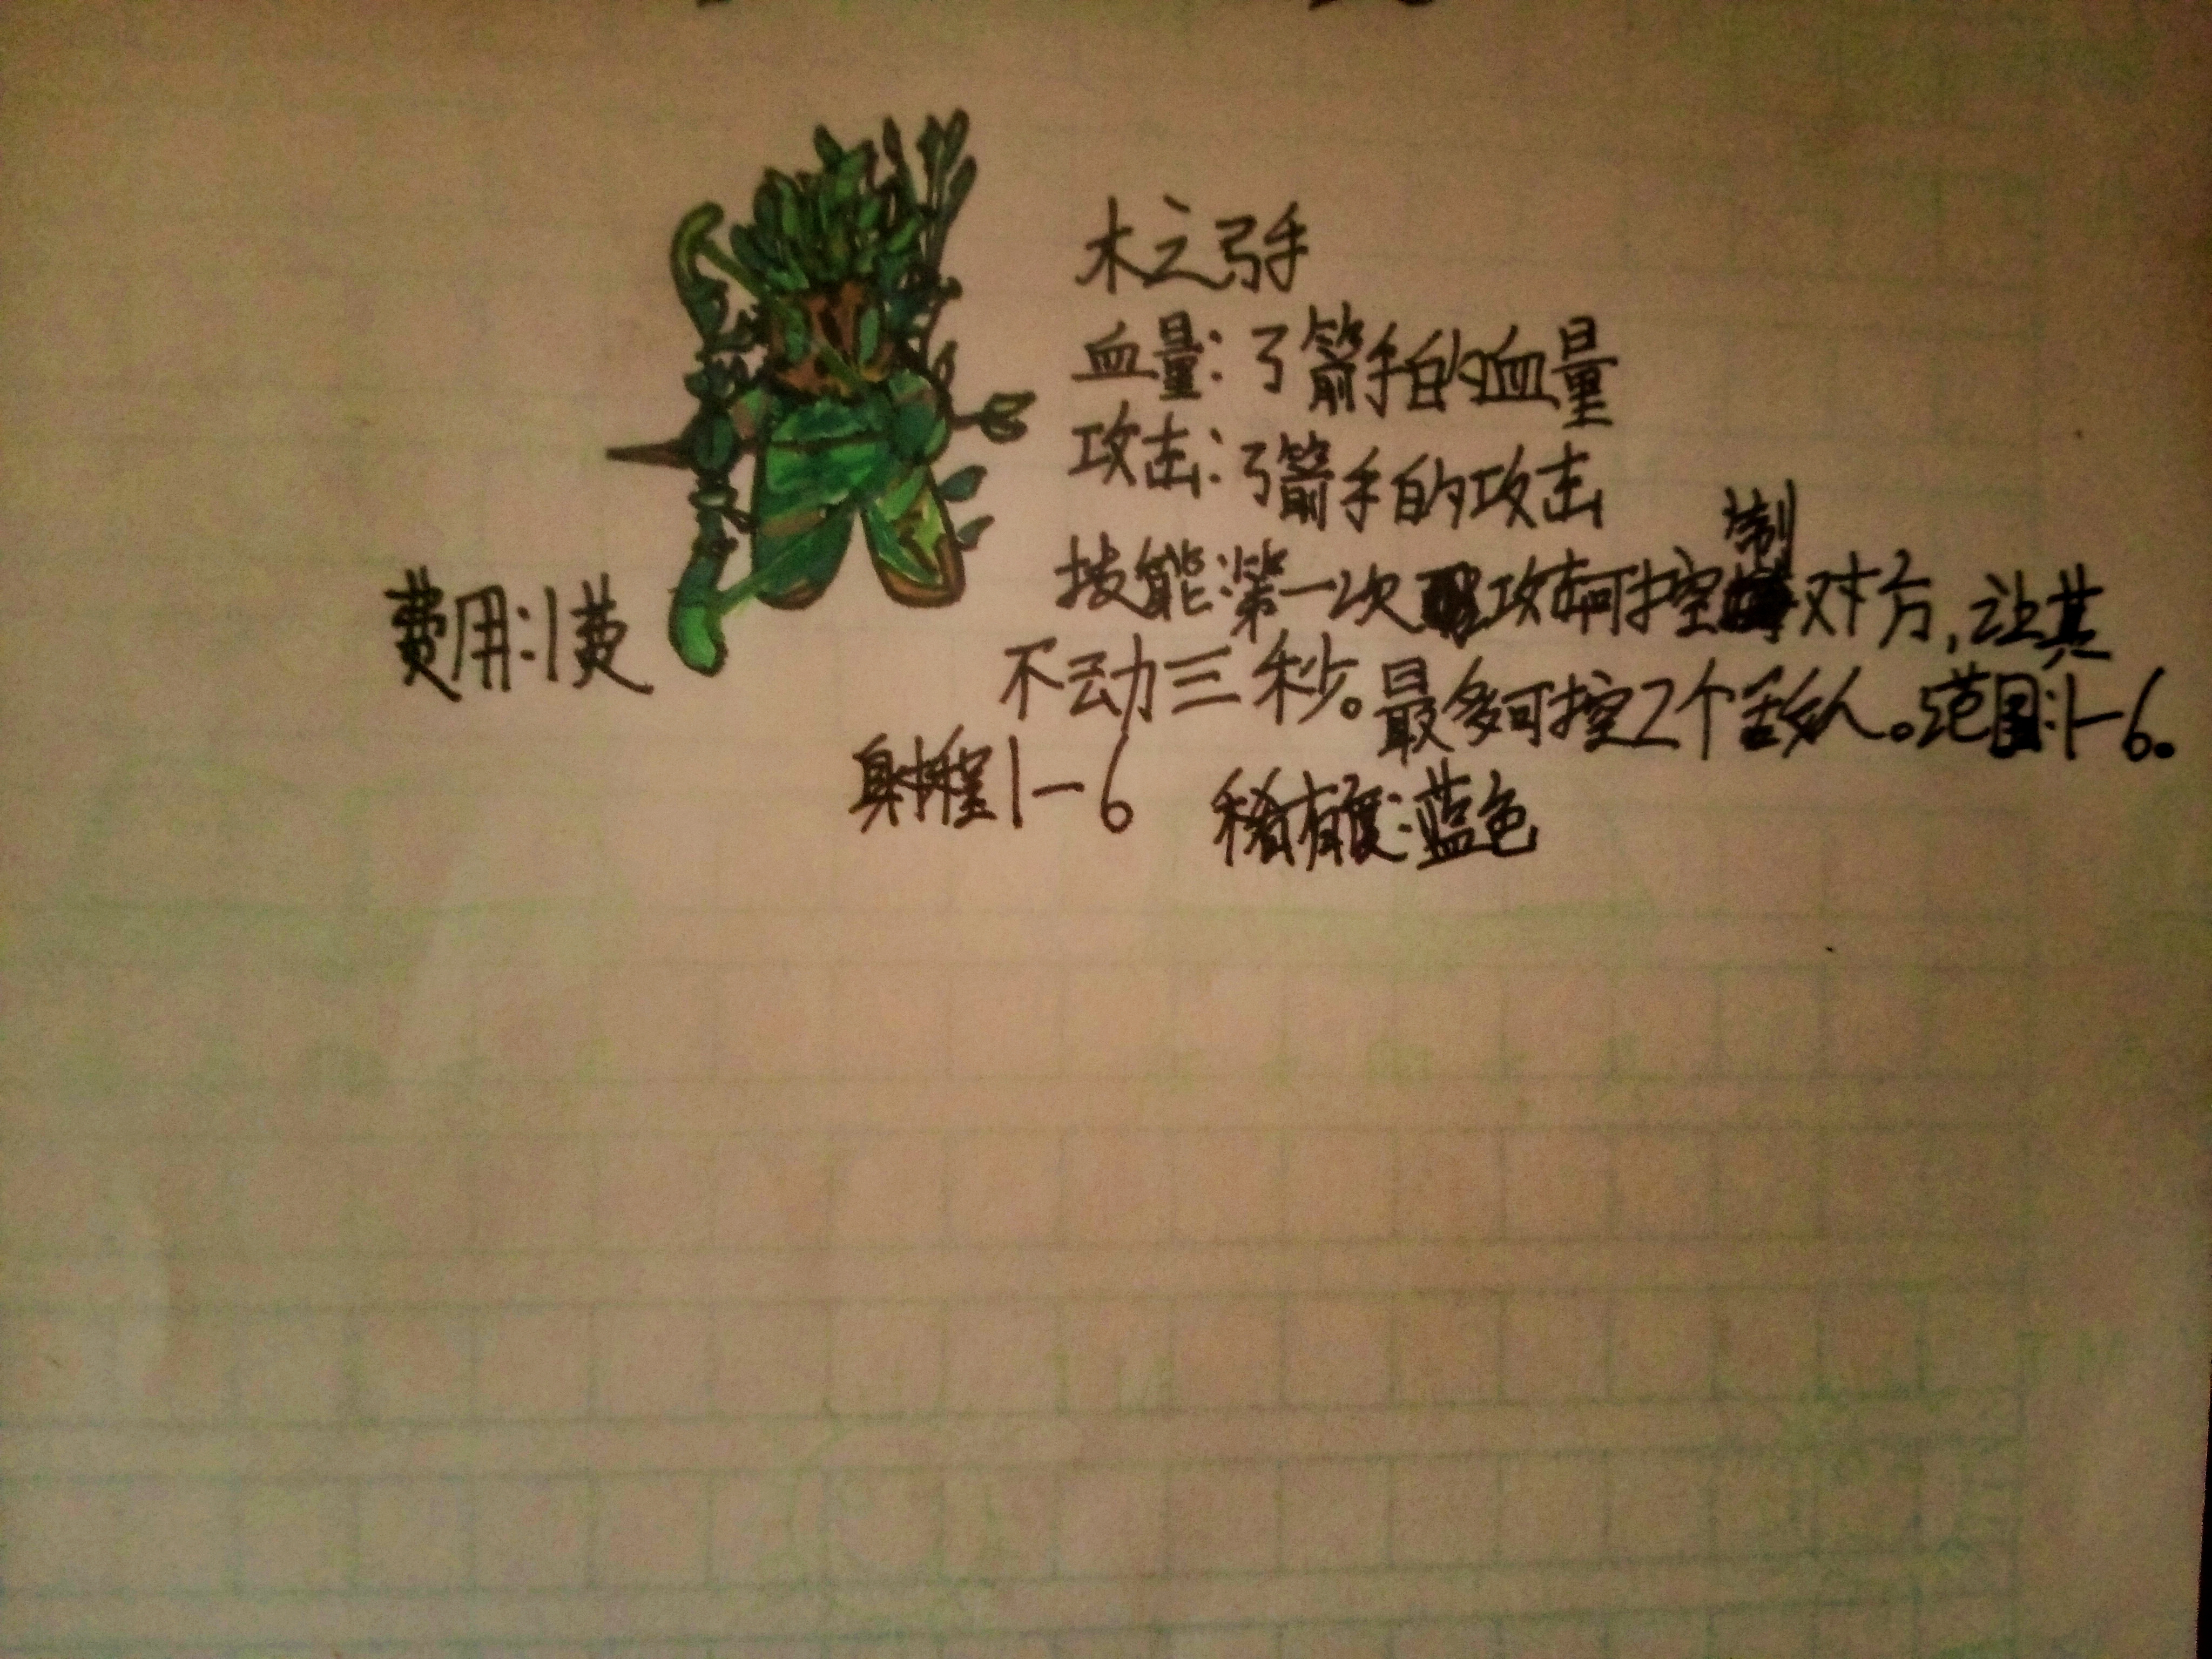 木之弓手
血量：弓箭手的血量
攻击：弓箭手的攻击
技能：第一次攻击可控制对方，让其
不动三秒。最多可控2个敌人。范围：1-6。
费用：1费
射程1-6
稀有度：蓝色